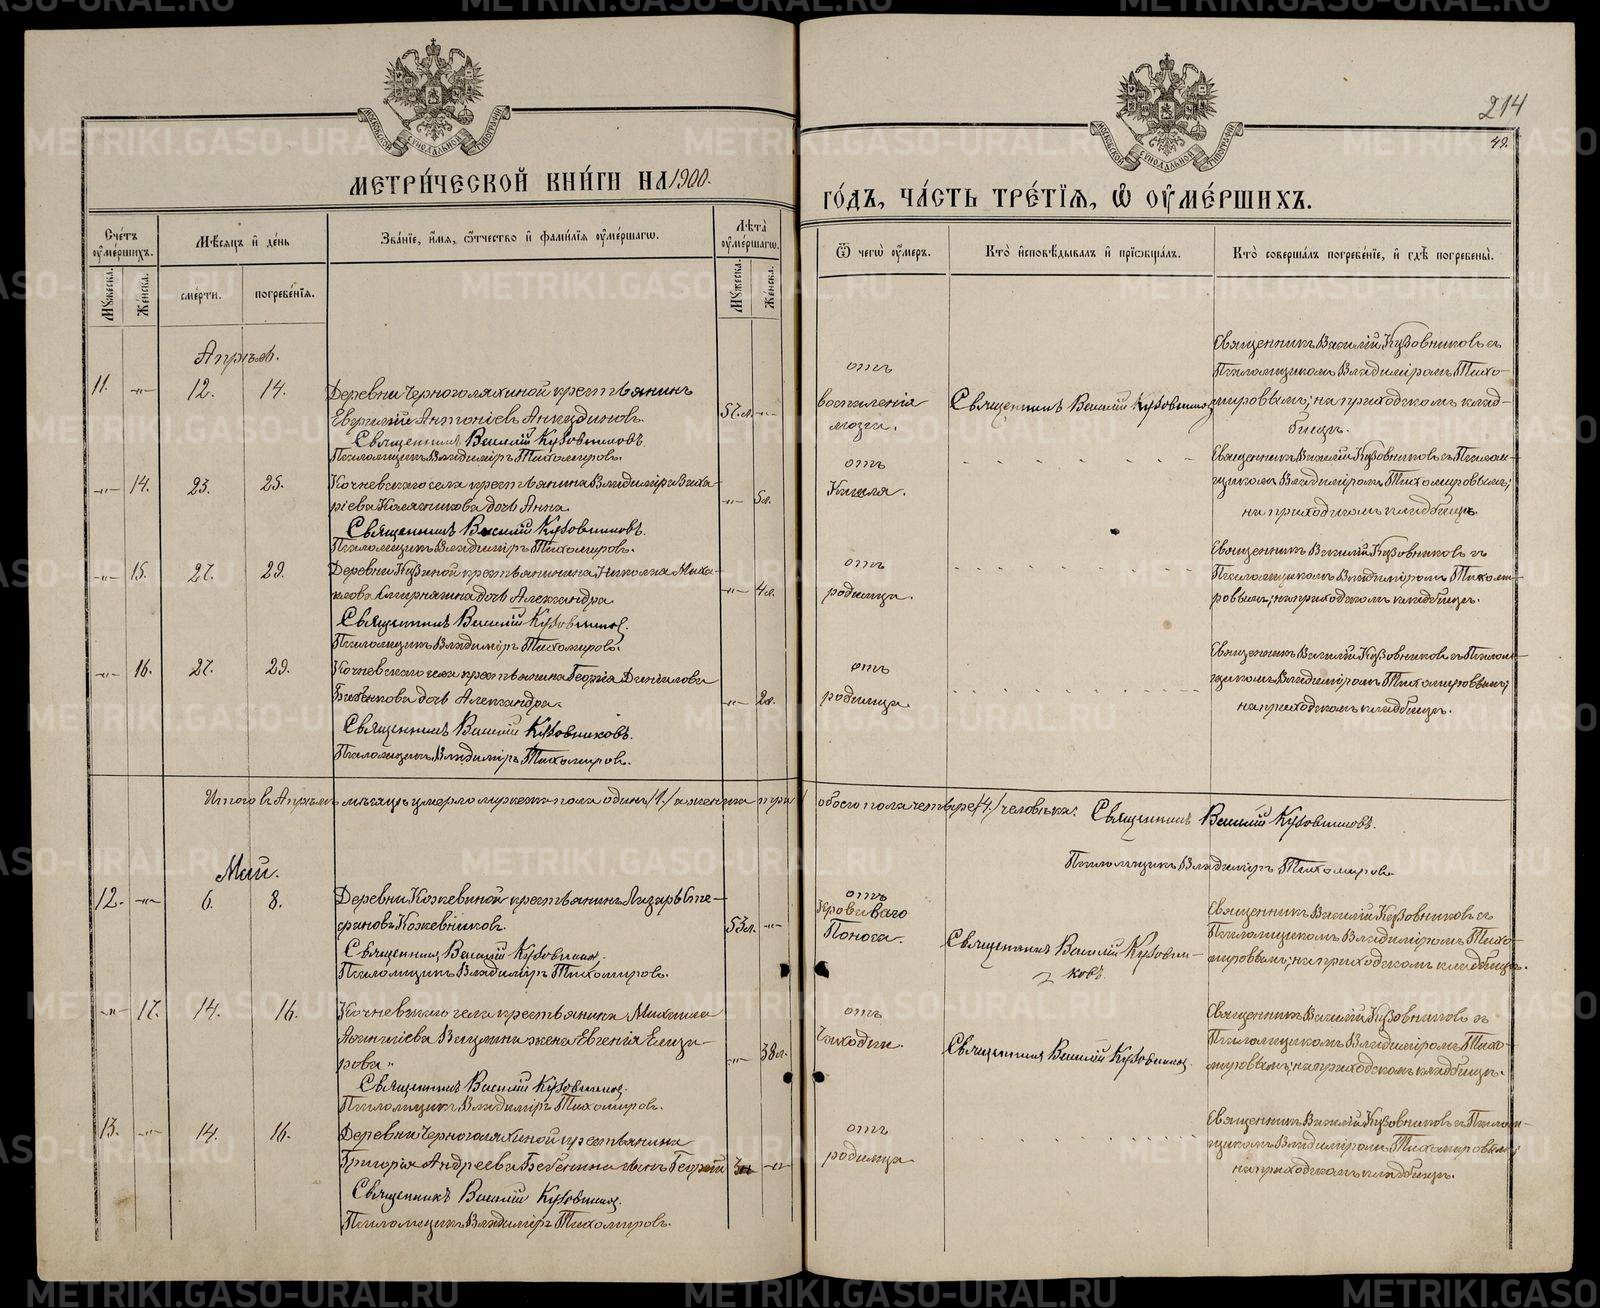 214
49.
МЕТРИ́ЧЕСКОЙ КНИ́ГИ НА 1900.
ГО́ДЪ, ЧА́СТЬ ТРЕ́ТІѦ, Ѽ ОУ҆МЕ́РШИХЪ.
Сче́тъ оу҆ме́ршихъ.
Мꙋжеска.
Же́нска.
Мѣ́сѧцъ и҆ де́нь
сме́рти.
погребе́нїѧ.
Зва́нїе, и҆́мѧ, ѻ҆́тчество и҆ фами́лїѧ оу҆ме́ршагѡ.
Лѣ́та оу҆ме́ршагѡ.
Мꙋжеска.
Же́нска.
Ѿ чегѡ̀ оу҆́меръ.
Кто̀ и҆сповѣ́дывалъ и҆ прїѡбща́лъ.
Кто̀ соверша́лъ погребе́нїе, и҆ гдѣ̀ погребены̀.
Апрѣль.
11. -"- 12. 14. Деревни Черноголяхиной крестьянинъ
Антоніевъ Анкудиновъ. 57 л. -"-
Священникъ Василій Кузовниковъ.
Псаломщикъ Владиміръ Тихомировъ.
отъ
воспаленія
мозги.
Священникъ Василій Кузовниковъ
Священникъ Василій Кузовниковъ съ
Псаломщикомъ Владиміромъ Тихо-
мировымъ; на приходскомъ клад-
бищѣ.
-"- 14. 23. 25. Кочневскаго села крестьянина Владиміра Заха-
ріева дочь Анна. -"- 5 л.
Священникъ Василій Кузовниковъ.
Псаломщикъ Владиміръ Тихомировъ.
отъ
Кашля.
Священникъ Василій Кузовниковъ съ Псалом-
щикомъ Владиміромъ Тихомировымъ;
на приходскомъ кладбищѣ.
-"- 15. 27. 29. Деревни крестьянина Николая Миха-
илова дочь Александра. -"- 4 л.
Священникъ Василій Кузовниковъ.
Псаломщикъ Владиміръ Тихомировъ.
отъ
родимца.
Священникъ Василій Кузовниковъ съ
Псаломщикомъ Владиміромъ Тихоми-
ровымъ; на приходскомъ кладбищѣ.
-"- 16. 27. 29. Кочневскаго села крестьянина Георгія Данилова
дочь Александра. -"- 2 л.
Священникъ Василій Кузовниковъ.
Псаломщикъ Владиміръ Тихомировъ.
отъ
родимца.
Священникъ Василій Кузовниковъ съ Псалом-
щикомъ Владиміромъ Тихомировымъ;
на приходскомъ кладбищѣ.
Итого въ Апрѣлѣ мѣсяцѣ умерло мужеска пола одинъ /1/ а женска три обоего пола четыре /4/ человѣка. Священникъ Василій Кузовниковъ.
Псаломщикъ Владиміръ Тихомировъ.
Май.
12. -"- 6. 8. Деревни Кожевиной крестьянинъ Лазарь Сте-
фановъ Кожевниковъ. 53 л. -"-
Священникъ Василій Кузовниковъ.
Псаломщикъ Владиміръ Тихомировъ.
отъ
Кроваваго
Поноса.
Священникъ Василій Кузовни-
ковъ.
Священникъ Василій Кузовниковъ съ
Псаломщикомъ Владиміромъ Тихо-
мировымъ; на приходскомъ кладбищѣ.
-"- 17. 14. 16. Кочневскаго села крестьянина Михаила
жена Евгенія Елиза-
рова. -"- 38 л.
Священникъ Василій Кузовниковъ.
Псаломщикъ Владиміръ Тихомировъ.
отъ
Чахотки.
Священникъ Василій Кузовниковъ.
Священникъ Василій Кузовниковъ съ
Псаломщикомъ Владиміромъ Тихо-
мировымъ; на приходскомъ кладбищѣ.
13. -"- 14. 16. Деревни Черноголяхиной крестьянина
Григорія Андреева сынъ Георгій -"-
Священникъ Василій Кузовниковъ.
Псаломщикъ Владиміръ Тихомировъ.
отъ
родимца
Священникъ Василій Кузовниковъ съ Псалом-
щикомъ Владиміромъ Тихомировымъ;
на приходскомъ кладбищѣ.
METRIKI.GASO-URAL.RU